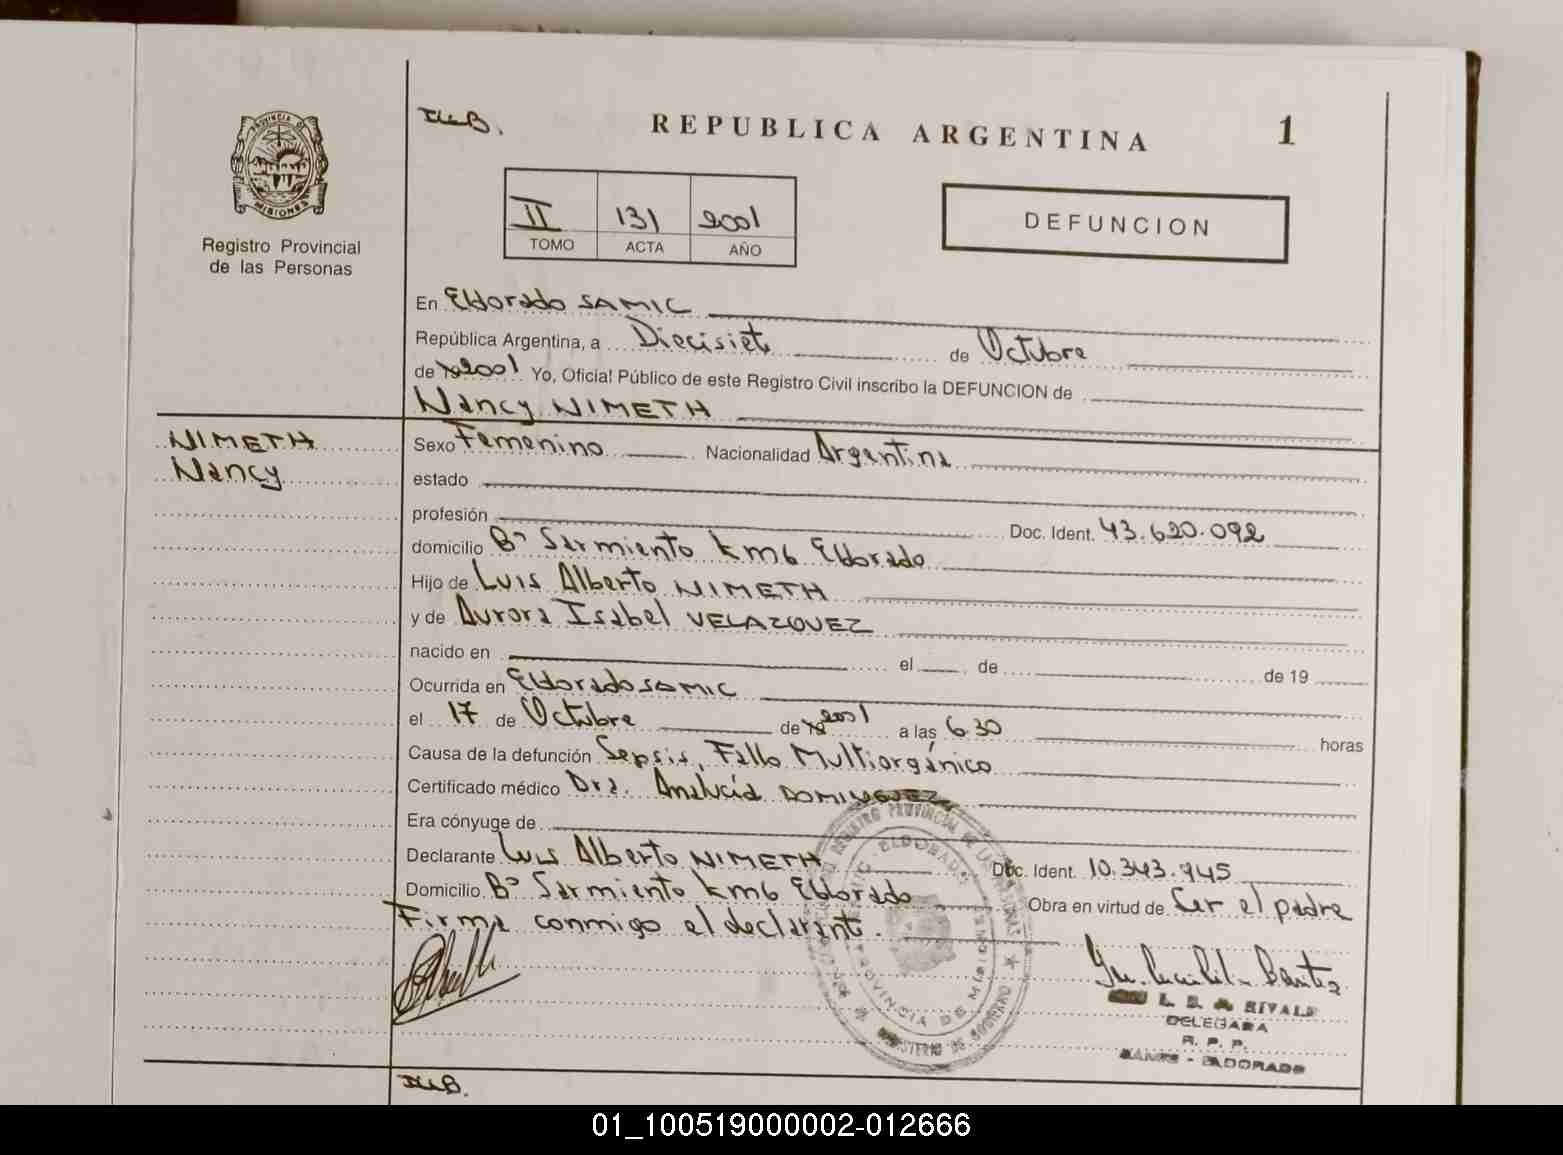 REPUBLICA ARGENTINA
1
PROVINCIA DE
MISIONES
Registro Provincial
de las Personas
II 131 2001
TOMO ACTA AÑO
DEFUNCION
En Eldorado SAMIC
República Argentina, a Diecisiete de Octubre
de 2001 Yo, Oficial Público de este Registro Civil inscribo la DEFUNCION de
Nancy NIMETH
NIMETH
Nancy
Sexo Femenino Nacionalidad Argentina
estado
profesión Doc. Ident. 43.620.092
domicilio Bº Sarmiento km6 Eldorado
Hijo de Luis Alberto NIMETH
y de Aurora Isabel VELAZQUEZ
nacido en el de de 19
Ocurrida en Eldorado SAMIC
el 17 de Octubre de 2001 a las 6.30 horas
Causa de la defunción Sepsis, Fallo Multiorgánico
Certificado médico Dra. Analucía DOMINGUEZ
Era cónyuge de
Declarante Luis Alberto NIMETH Doc. Ident. 10.343.945
Domicilio Bº Sarmiento km6 Eldorado Obra en virtud de Ser el padre
Firma conmigo el declarante.
ELDORADO
PROVINCIA DE MISIONES
MINISTERIO DE GOBIERNO
DELEGADA
R. P. P.
ELDORADO
01_100519000002-012666